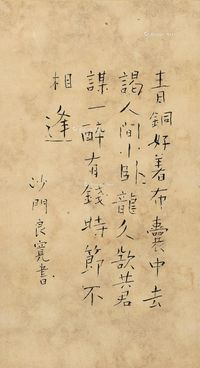 青銅好着布囊中去
謁人間小臥龍久欲共君
謀一醉有錢時節不
相逢
沙門良寬書